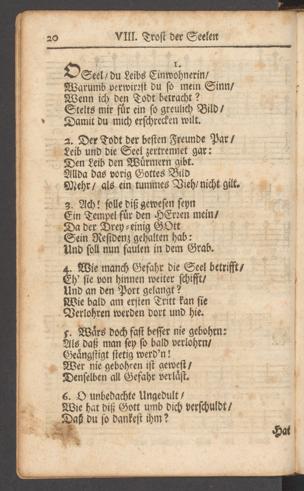 20 VIII. Trost der Seelen
1.
O Seel/ du Leibs Einwohnerin/
Warumb verwirrst du so mein Sinn/
Wenn ich den Todt betracht?
Stelts mir für ein so greulich Bild/
Damit du mich erschrecken wilt.
2. Der Todt der besten Freunde Par/
Leib und die Seel zertrennet gar:
Den Leib den Würmern gibt.
Allda das vorig Gottes Bild
Mehr/ als ein tummes Vieh/ nicht gilt.
3. Ach! solle diß gewesen seyn
Ein Tempel für den HErren mein/
Da der Drey-einig GOtt
Sein Residenz gehalten hab:
Und soll nun faulen in dem Grab.
4. Wie manch Gefahr die Seel betrifft/
Eh' sie von hinnen weiter schifft/
Und an den Port gelangt?
Wie bald am ersten Tritt kan sie
Verlohren werden dort und hie.
5. Wärs doch fast besser nie gebohrn:
Als daß man sey so bald verlohrn/
Geängstigt stetig werd'n!
Wer nie gebohren ist gewest/
Denselben all Gefahr verläst.
6. O unbedachte Ungedult/
Wie hat diß Gott umb dich verschuldt/
Daß du so danckest ihm?
Hat